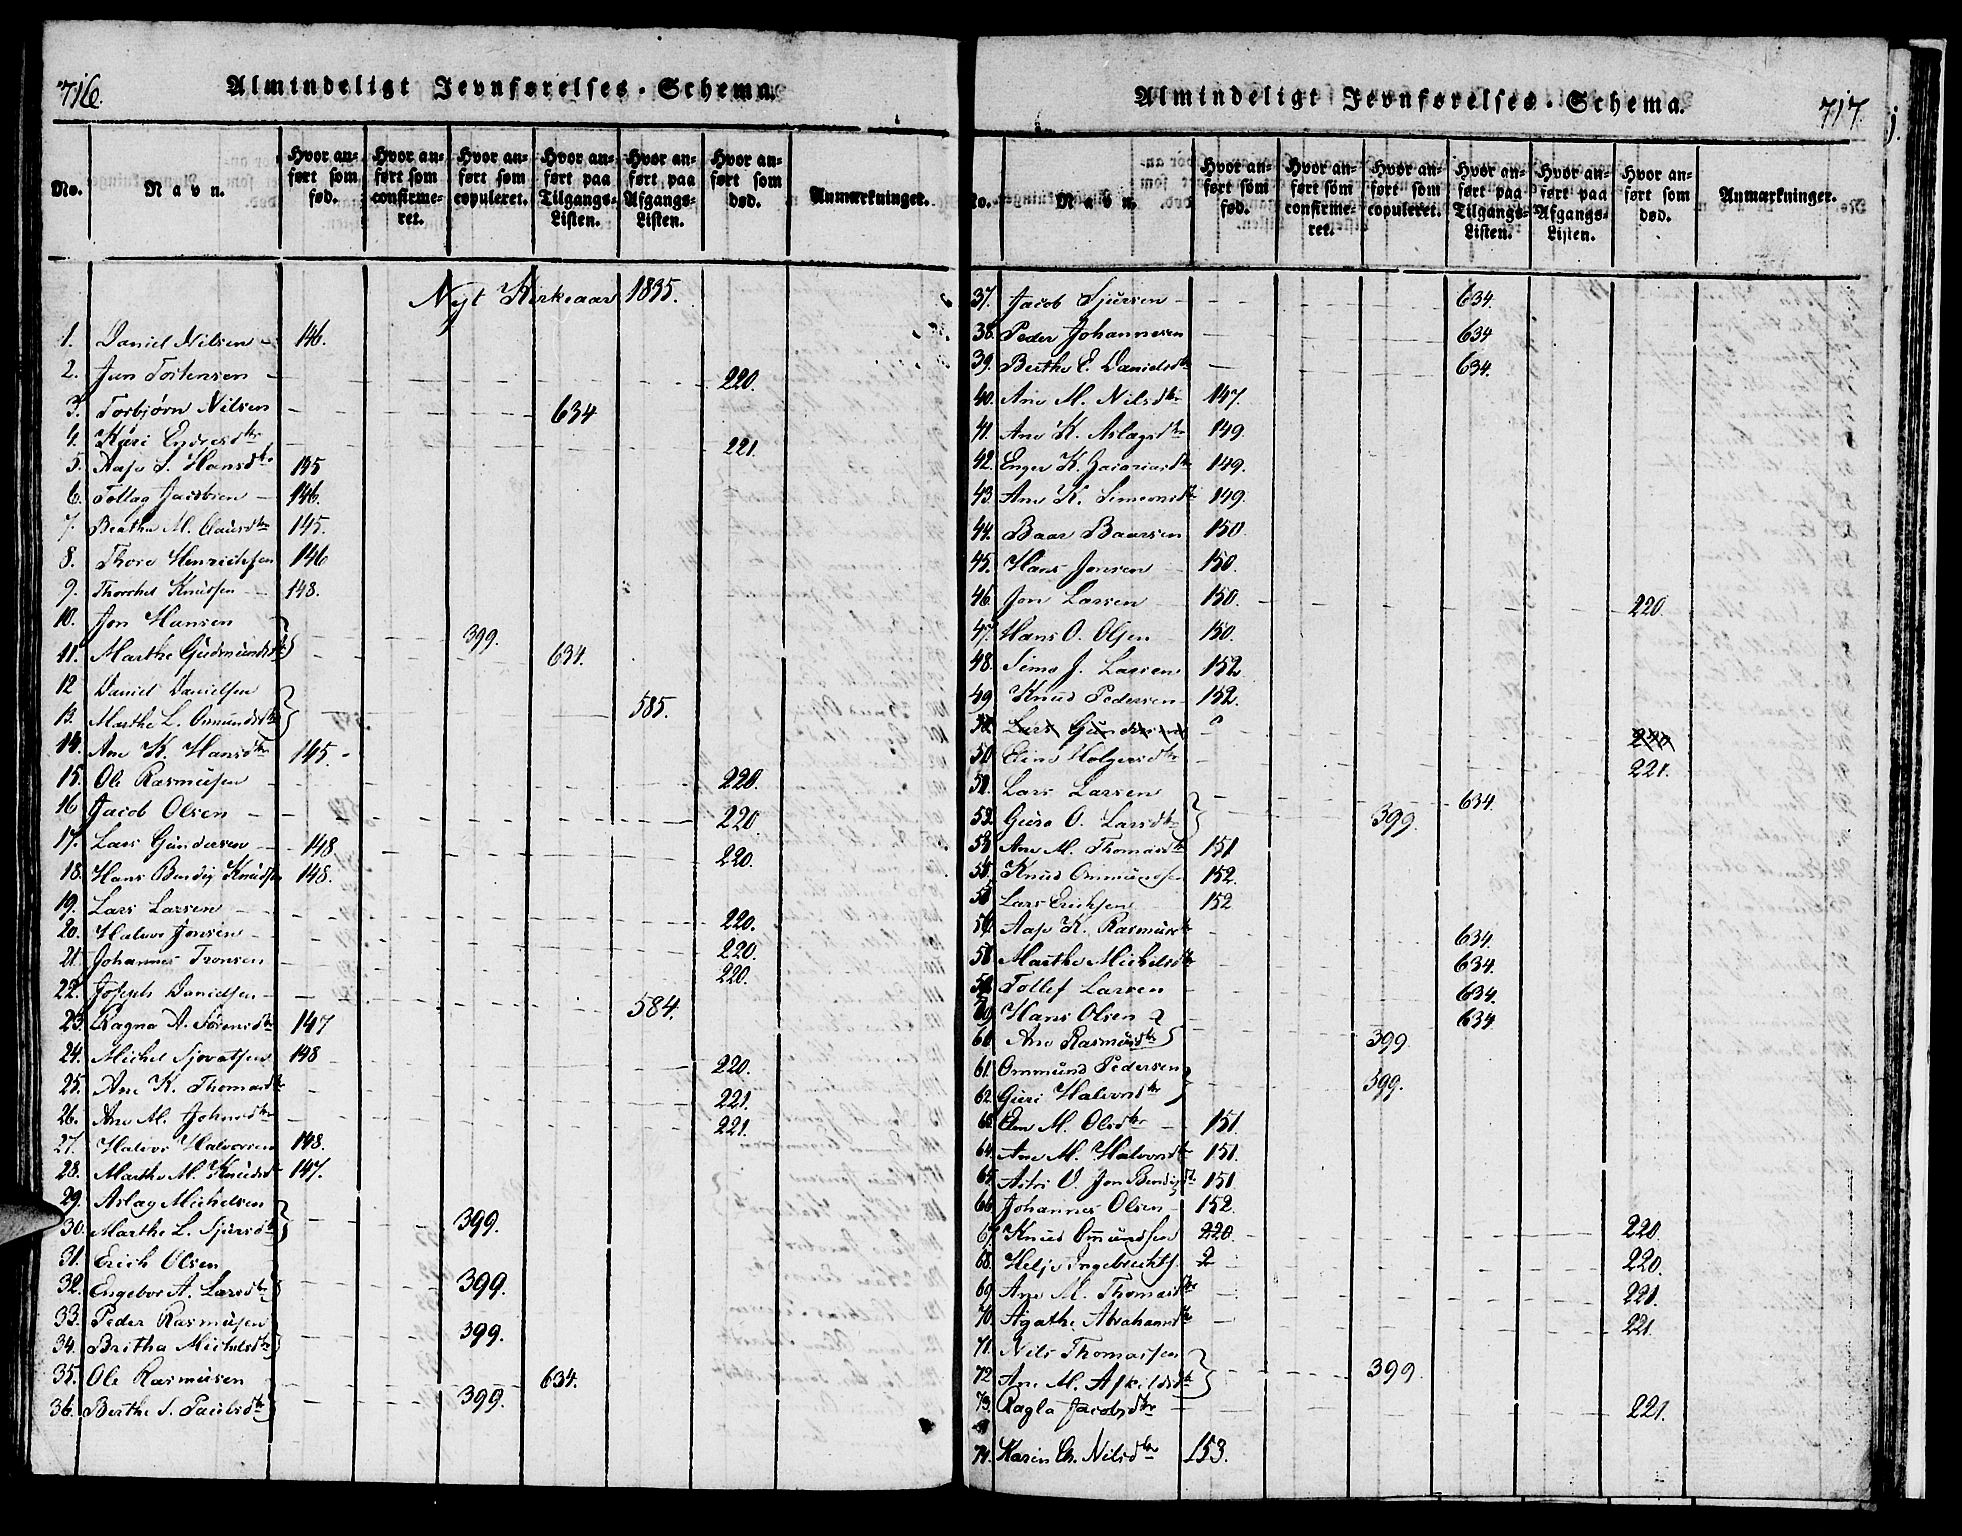 716.
Almindeligt Jevnførelses-Schema.
No.
Navn.
Hvor anført som fød.
Hvor anført som confirmeret.
Hvor anført som copuleret.
Hvor anført paa Tilgangs-Listen.
Hvor anført paa Afgangs-Listen.
Hvor anført som død.
Anmærkninger.
Nyt Kirkeaar 1835.
1. Daniel Nilsen 146.
2. Jun Tostensen 220.
3. Torbjørn Nilsen 634
4. Kari Endresdtr 221.
5. Aase S. Hansdtr 145
6. Tollag Jacobsen 146.
7. Berthe M. Clausdtr 145.
8. Thore Henrichsen 146
9. Thorchel Knudsen 148.
10. Jon Hansen 399.
11. Marthe Gudmundsdtr 634.
12 Daniel Danielsen
13. Marthe L. Osmundsdtr 585.
14. Ane K. Hansdtr 145.
15. Ole Rasmusen 220.
16 Jacob Olsen 220.
17. Lars Gundersen 148 220.
18. Hans Bendig Knudsen 148.
19. Lars Larsen 220.
20. Halvor Jonsen 220.
21. Johannes Tronsen 220.
22. Joseph Danielsen 584.
23. Ragna A. Sørensdtr 147
24. Michel Sjovatsen 148 220.
25. Ane K. Thomasdtr 221.
26. Ane M. Johnsdtr 221.
27. Halvor Halvorsen 148.
28. Marthe M. Knudsdtr 147.
29. Aslag Michelsen
30. Marthe L. Sjursdtr 399.
31. Erich Olsen
32. Engebor A. Larsdtr 399.
33. Peder Rasmusen
34. Britha Michelsdtr 399.
35. Ole Rasmusen 634.
36. Berthe S. Paulsdtr 399.
Almindeligt Jevnførelses-Schema.
717.
No.
Navn.
Hvor anført som fød.
Hvor anført som confirmeret.
Hvor anført som copuleret.
Hvor anført paa Tilgangs-Listen.
Hvor anført paa Afgangs-Listen.
Hvor anført som død.
Anmærkninger.
37. Jacob Sjursen 634.
38. Peder Johannesen 634
39. Berthe E. Danielsdtr 634.
40. Ane M. Nilsdtr 147.
41. Ane K. Aslagsdtr 149.
42. Enger K. Zacariasdtr 149.
43. Ane K. Simeonsdtr 149.
44. Baar Baarsen 150.
45. Hans Jonsen 150.
46. Jon Larsen 150. 220.
47. Hans O. Olsen 150.
48. Simo J. Larsen 152
49 Knud Pedersen 152.
Lars Gundersen
50. Eline Holgersdtr 221.
51. Lars Larsen 634.
52. Guro O. Larsdtr 399.
53. Ane M. Thomasdtr 151
54. Knud Ommundsen 152.
55. Lars Erichsen 152
56. Aase K. Rasmusdtr 634.
Marthe Michelsdtr 634.
58. Tollef Larsen 634.
Hans Olsen 634
60. Ane Rasmusdtr 399
61. Ommund Pedersen
62. Guri Halvorsdtr 399.
63. Elen M. Olsdtr 151.
64. Ane M. Halvorsdtr 151.
65. Astri O. Jon Bendigsdtr 151
66. Johannes Olsen 152.
67. Knud Omundsen 220. 220.
68. Helje Ingebrechts. 220.
69. Ane M. Thomasdtr 221.
70. Agathe Abrahamsdtr 221.
71. Nils Thomassen
72. Ane M. Askildsdtr 399.
73. Ragla Jacobsdtr 221.
74. Karen Ch. Nilsdtr 153.